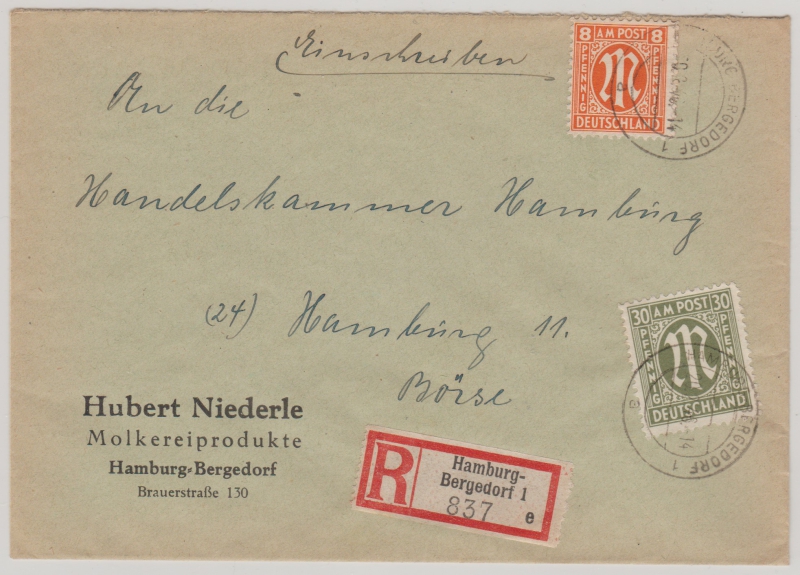 Einschreiben
8 AM POST 8
PFENNIG PFENNIG
DEUTSCHLAND
BERGEDORF 1
An die
Handelskammer Hamburg
(24) Hamburg 11.
Börse
30 AM POST 30
PFENNIG PFENNIG
DEUTSCHLAND
BERGEDORF 1
Hubert Niederle
Molkereiprodukte
Hamburg-Bergedorf
Brauerstraße 130
R
Hamburg-
Bergedorf 1
837 e